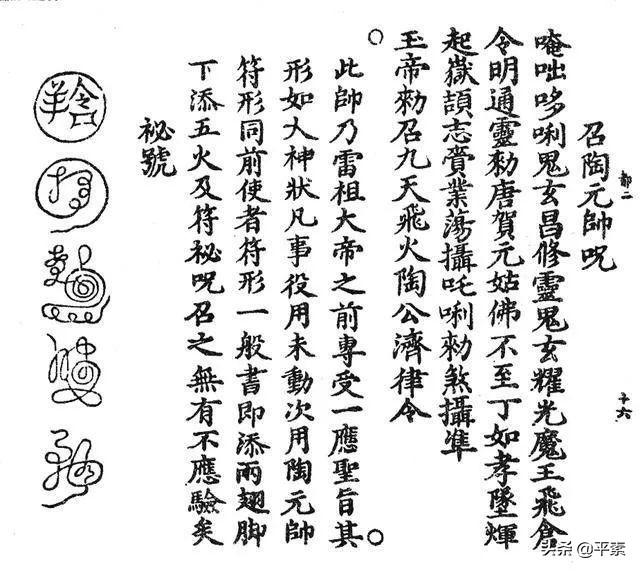 召陶元帥呪
唵咄哆唎鬼玄昌修靈鬼玄耀光魔王飛倉
令明通靈勑唐賀元姑佛不至丁如孝墜煇
起嶽頡志賷業蕩攝吒唎勑煞攝準
玉帝勑召九天飛火陶公濟律令
此帥乃雷祖大帝之前專受一應聖旨其
形如大神狀凡事役用未動次用陶元帥
符形同前使者符形一般書即添兩翅脚
下添五火及符祕呪召之無有不應驗矣
祕號
部二
十六
头条 @平素